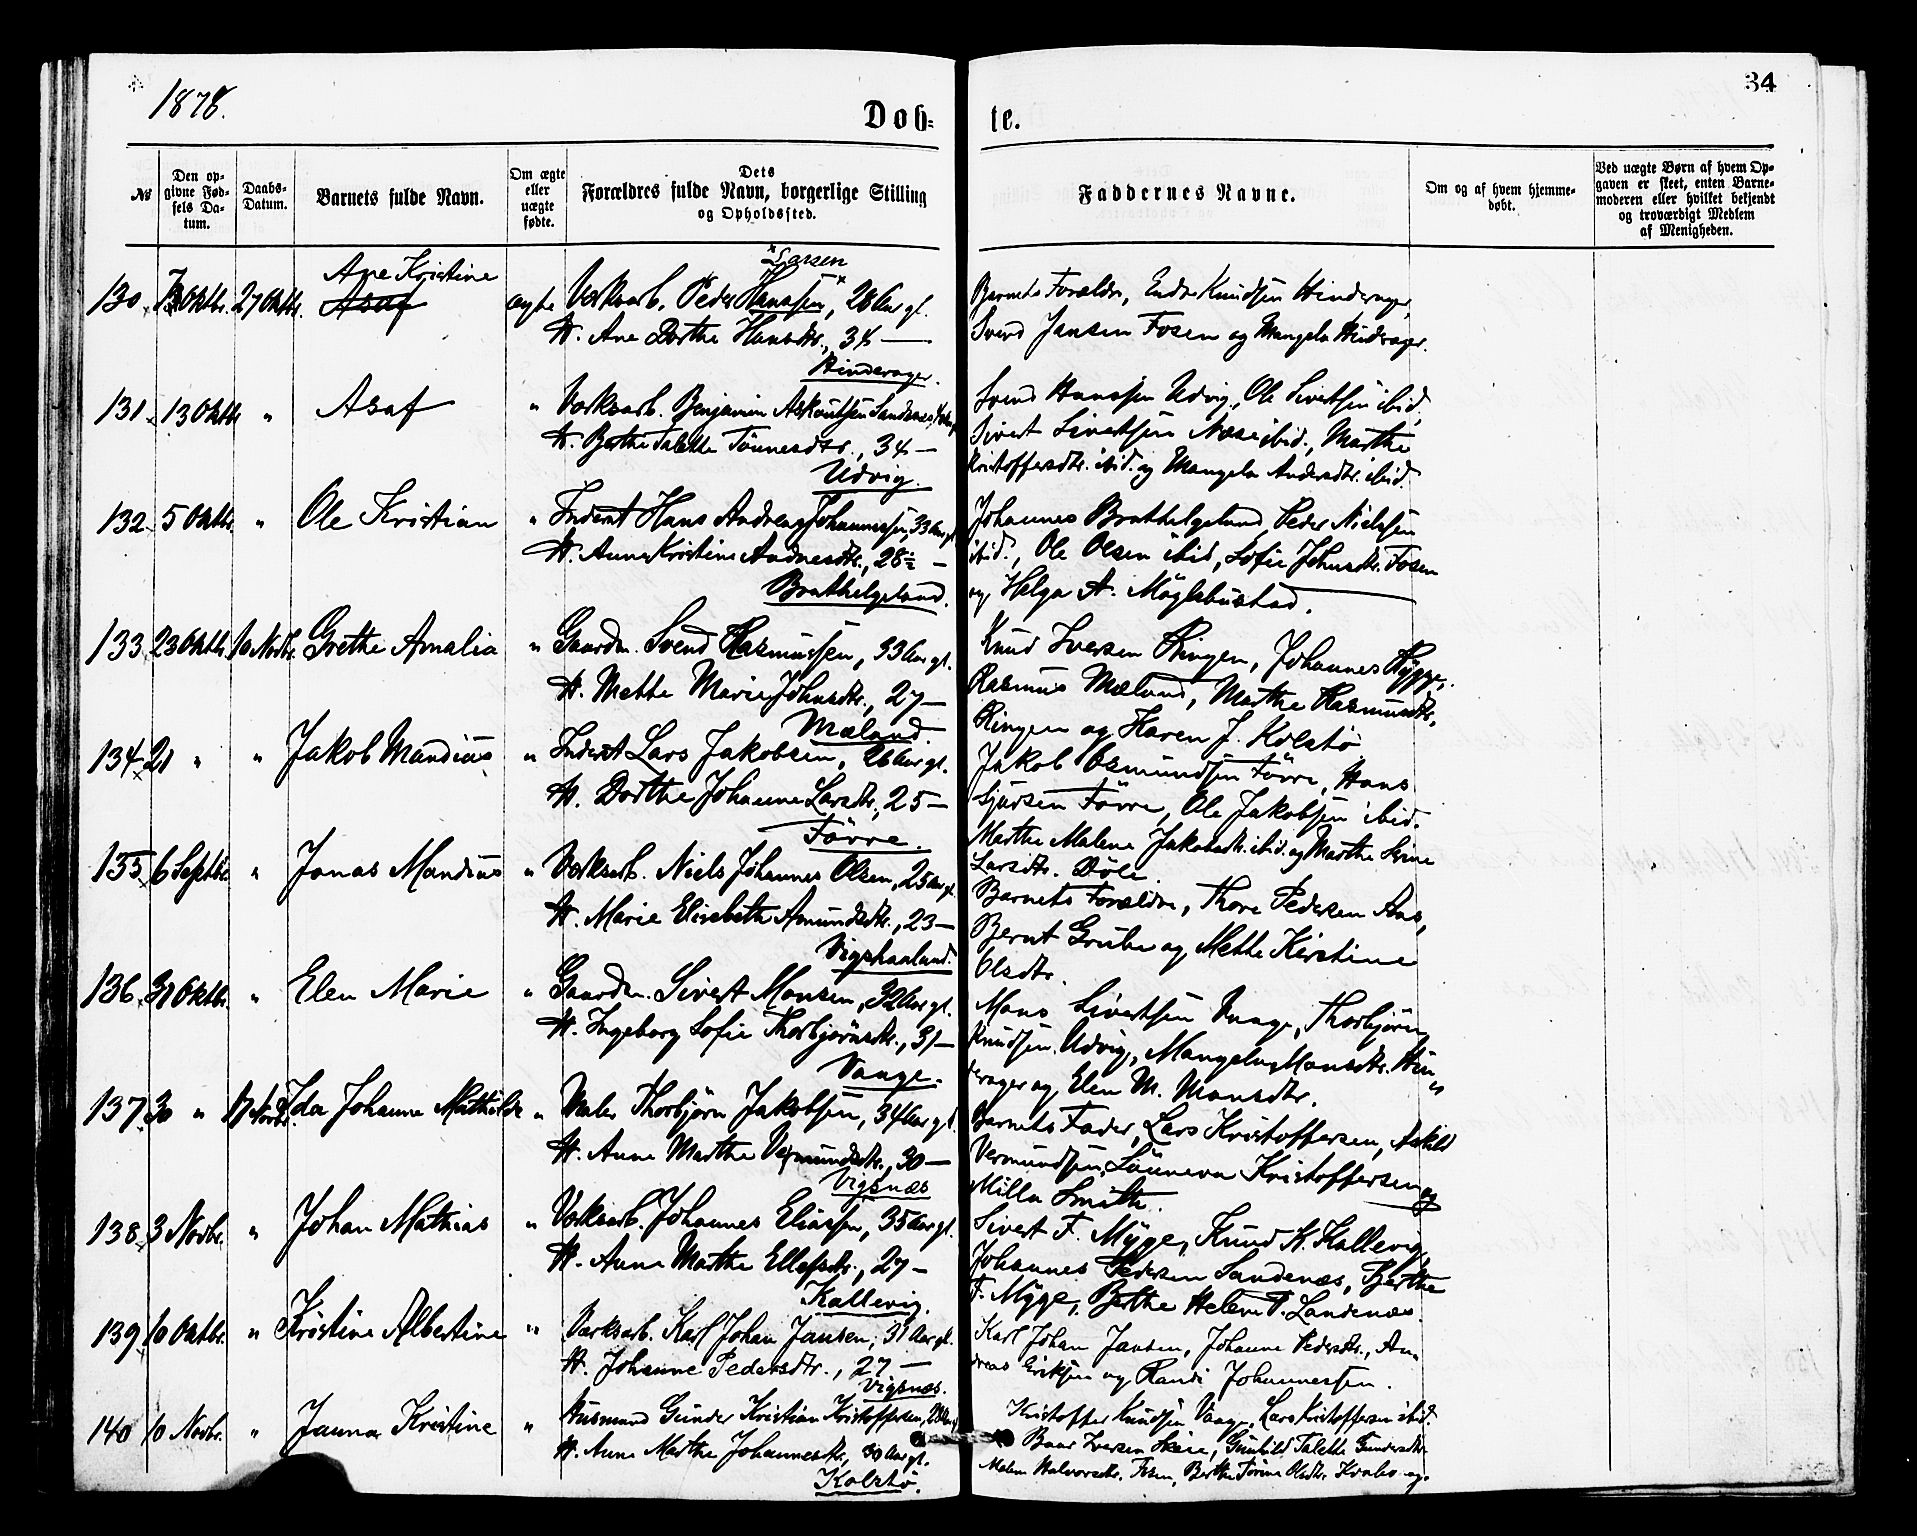 1878.
Døb-
te.
34
№
Den op-
givne Fød-
sels Da-
tum.
Daabs-
Datum.
Barnets fulde Navn.
Om ægte
eller
uægte
fødte.
Dets
Forældres fulde Navn, borgerlige Stilling
og Opholdssted.
Faddernes Navne.
Om og af hvem hjemme-
døbt.
Ved uægte Børn af hvem Op-
gaven er skeet, enten Barne-
moderen eller hvilket bekjendt
og troværdigt Medlem
af Menigheden.
130 Oktbr. 27 Oktbr. Ane Kristine
Asaf
ægte Værksarb. Peder Hanssen, 28 Aar gl.
Larsen
H. Ane Dorthe Hansdtr., 34 —
Hinderager.
Barnets Forældre, Endre Knudsen Hinderager,
Svend Jansen Fosen og Mangela Hinderager.
131 13 Oktbr. " Asaf " Værksarb. Benjamin Askoutsen Sandenæs
H. Berthe Talette Tönnesdtr., 34 —
Udvig.
Svend Hanssen Udvig, Ole Sivertsen ibid.,
Sivert Sivertsen Næse ibid., Marthe
Kristoffersdtr. ibid. og Mangela Andersdtr. ibid.
132 5 Oktbr. " Ole Kristian " Inderst Hans Andreas Johannessen, 33 Aar gl.
H. Anna Kristine Andreasdtr., 28 —
Brathelgeland.
Johannes Brathelgeland, Peder Nielssen
ibid., Ole Olsen ibid, Sofie Johnsdtr. Fosen
og Helga A. Möglebustad.
133 23 Oktbr. 10 Novbr. Grethe Amalia " Gaardm. Svend Rasmussen, 33 Aar gl.
H. Mette Marie Johnsdtr., 27 —
Mæland.
Knud Iversen Ringen, Johannes Hygge,
Rasmus Mæland, Marthe Rasmusdtr.
Ringen og Karen J. Kolstø
134 21 " " Jakob Mandius " Inderst Lars Jakobsen, 26 Aar gl.
H. Dorthe Johanne Larsdtr., 25 —
Förre.
Jakob Osmundsen Förre, Hans
Sjursen Förre, Ole Jakobsen ibid.
Marthe Malene Jakobsdtr. ibid. og Marthe Serine
Larsdtr. Döle.
135 6 Septbr. " Jonas Mandius " Værksarb. Niels Johannes Olsen, 25 Aar gl.
H. Marie Elisabeth Amundsdtr., 23 —
Vigshaaland.
Barnets Forældre, Thore Pedersen Aas,
Bernt Grube og Mette Kirstine
Olsdtr.
136 31 Oktbr. " Elen Marie " Gaardm. Sivert Monsen, 32 Aar gl.
H. Ingeborg Sofie Thorbjørnsdtr., 31 —
Vaage.
Mons Sivertsen Vaage, Thorbjørn
Knudsen Udvig, Mangela Monsdtr. Hin-
derager og Elen M. Monsdtr.
137 30 " 17 Novbr. Ida Johanne Mathilde " Maler Thorbjørn Jakobsen, 34 Aar gl.
H. Anne Marthe Vermundsdtr., 30 —
Vigsnæs
Barnets Fader, Lars Kristoffersen, Askild
Vermundsen, Lönneva Kristoffersen og
Milla Smith.
138 3 Novbr. " Johan Mathias " Værksarb. Johannes Eliassen, 35 Aar gl.
H. Anne Marthe Ellefsdtr., 27 —
Kallevig.
Sivert F. Myge, Knud K. Kallevig,
Johannes Pedersen Sandenæs, Berthe
F. Myge, Berthe Helene P. Sandenæs.
139 10 Oktbr. " Kristine Albertine " Værksarb. Karl Johan Jansen, 31 Aar gl.
H. Johanne Pedersdtr., 27 —
Vigsnæs.
Karl Johan Jansen, Johanne Pedersdtr., An-
dreas Eriksen og Randi Johannessen.
140 10 Novbr. " Janna Kristine " Husmand Gunder Kristian Kristoffersen,
H. Anne Marthe Johannesdtr., 30 Aar gl.
Kolstø.
Kristoffer Knudsen Vaage, Lars Kristoffersen ibid.
Baar Iversen Skeie, Gunhild Talette Gundersdtr.
Malene Halvorsdtr. Fosen, Berthe Torine Olsdtr. Kvalø og